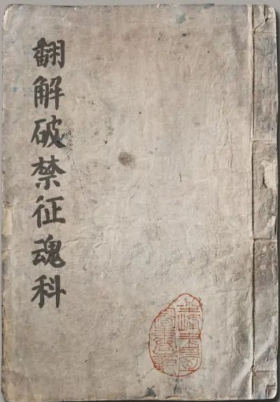 翻解破禁征魂科